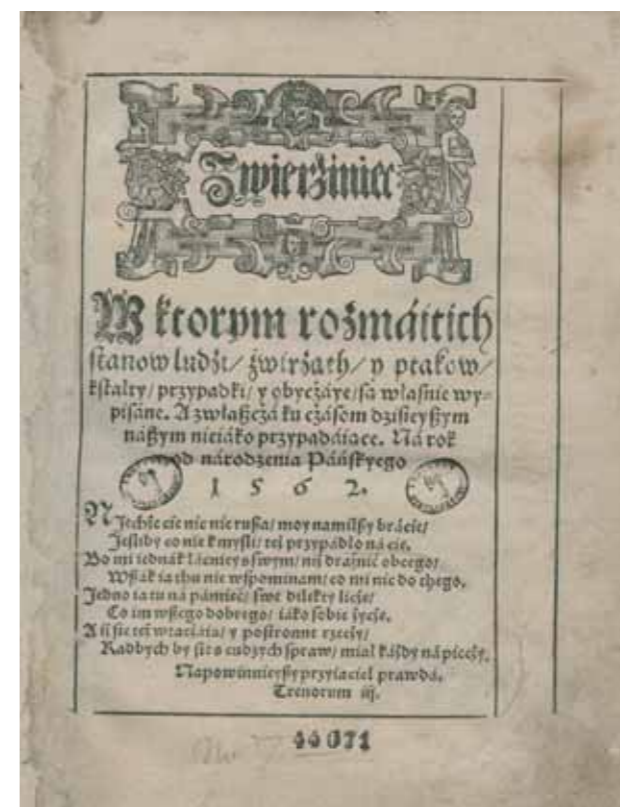 Zwierżiniec
W ktorym rożmáitich
stanow ludźi/ źwirżath/ y ptakow/
kstałty/ przypadki/ y obyczáye/ są własnie wy-
pisáne. A zwłaszcżá ku cżásom dzisieyszym
nászym nieiáko przypadáiące. Ná rok
od národzenia Páńskyego
1 5 6 2.
Niechże cie nic nie rusza/ moy namilszy brácie/
Jesliby co nie k myśli/ tej przypádło ná cie.
Bo mi iednák łácniey o swym/ niż drażnić obcego/
Wszak ia thu nie wspominam/ co mi nic do thego.
Jedno ia tu ná pámięć/ swe dilekty licżę/
Co im wszego dobrego/ iáko sobie życżę.
A iż sie też wtacáią/ y postronne rzecży/
Radbych by sie o cudzych spraw/ miał káżdy ná piecży.
Napowinnieyszy przyiaciel prawdá.
Trenorum iij.
44071